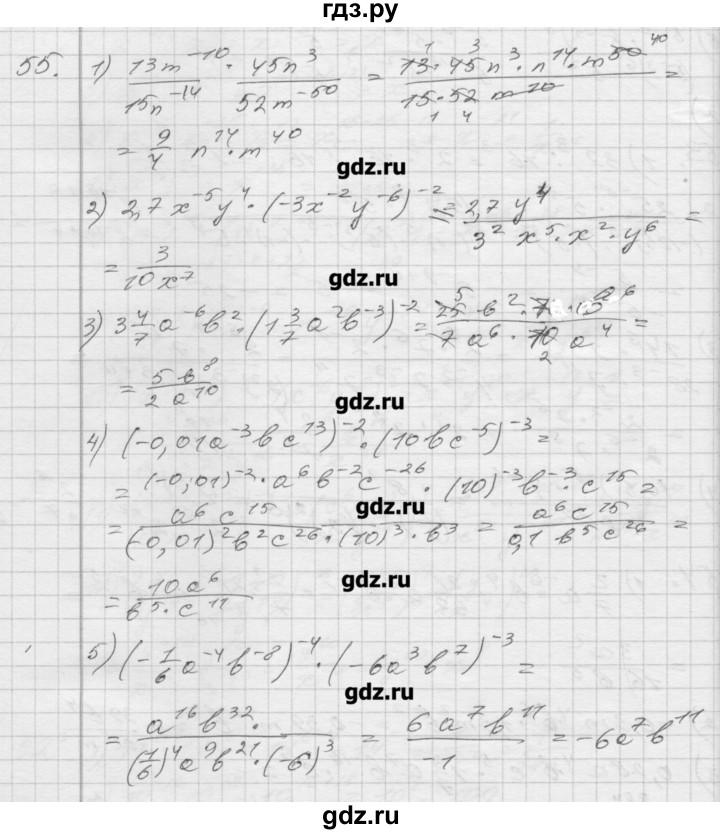 гдз.ру
55. 1) 13m⁻¹⁰/15n⁻¹⁴ · 45n³/52m⁻⁵⁰ = 13·45n³·n¹⁴·m⁵⁰ ⁴⁰/15·52 m¹⁰ =
= 9/4 n¹⁷·m⁴⁰
gdz.ru
2) 2,7x⁻⁵y⁴·(-3x⁻²y⁻⁶)⁻² = 2,7y⁴/3² x⁵·x²·y⁶ =
= 3/10x⁷
gdz.ru
3) 3 4/7 a⁻⁶b²·(1 3/7 a²b⁻³)⁻² = 25 b²·7·b⁶/7a⁶·10 a⁴ =
= 5b⁸/2a¹⁰
gdz.ru
4) (-0,01a⁻³bc¹³)⁻²·(10bc⁻⁵)⁻³ =
= (-0,01)⁻²·a⁶b⁻²c⁻²⁶·(10)⁻³b⁻³·c¹⁵ =
gdz.ru
= a⁶c¹⁵/(-0,01)²b²c²⁶·(10)³·b³ = a⁶c¹⁵/0,1 b⁵c²⁶ =
gdz.ru
= 10a⁶/b⁵·c¹¹
5) (-1/6 a⁻⁴b⁻⁸)⁻⁴·(-6a³b⁷)⁻³ =
gdz.ru
= a¹⁶b³²·/(1/6)⁴a⁹b²¹·(-6)³ = 6a⁷b¹¹/-1 = -6a⁷b¹¹
gdz.ru